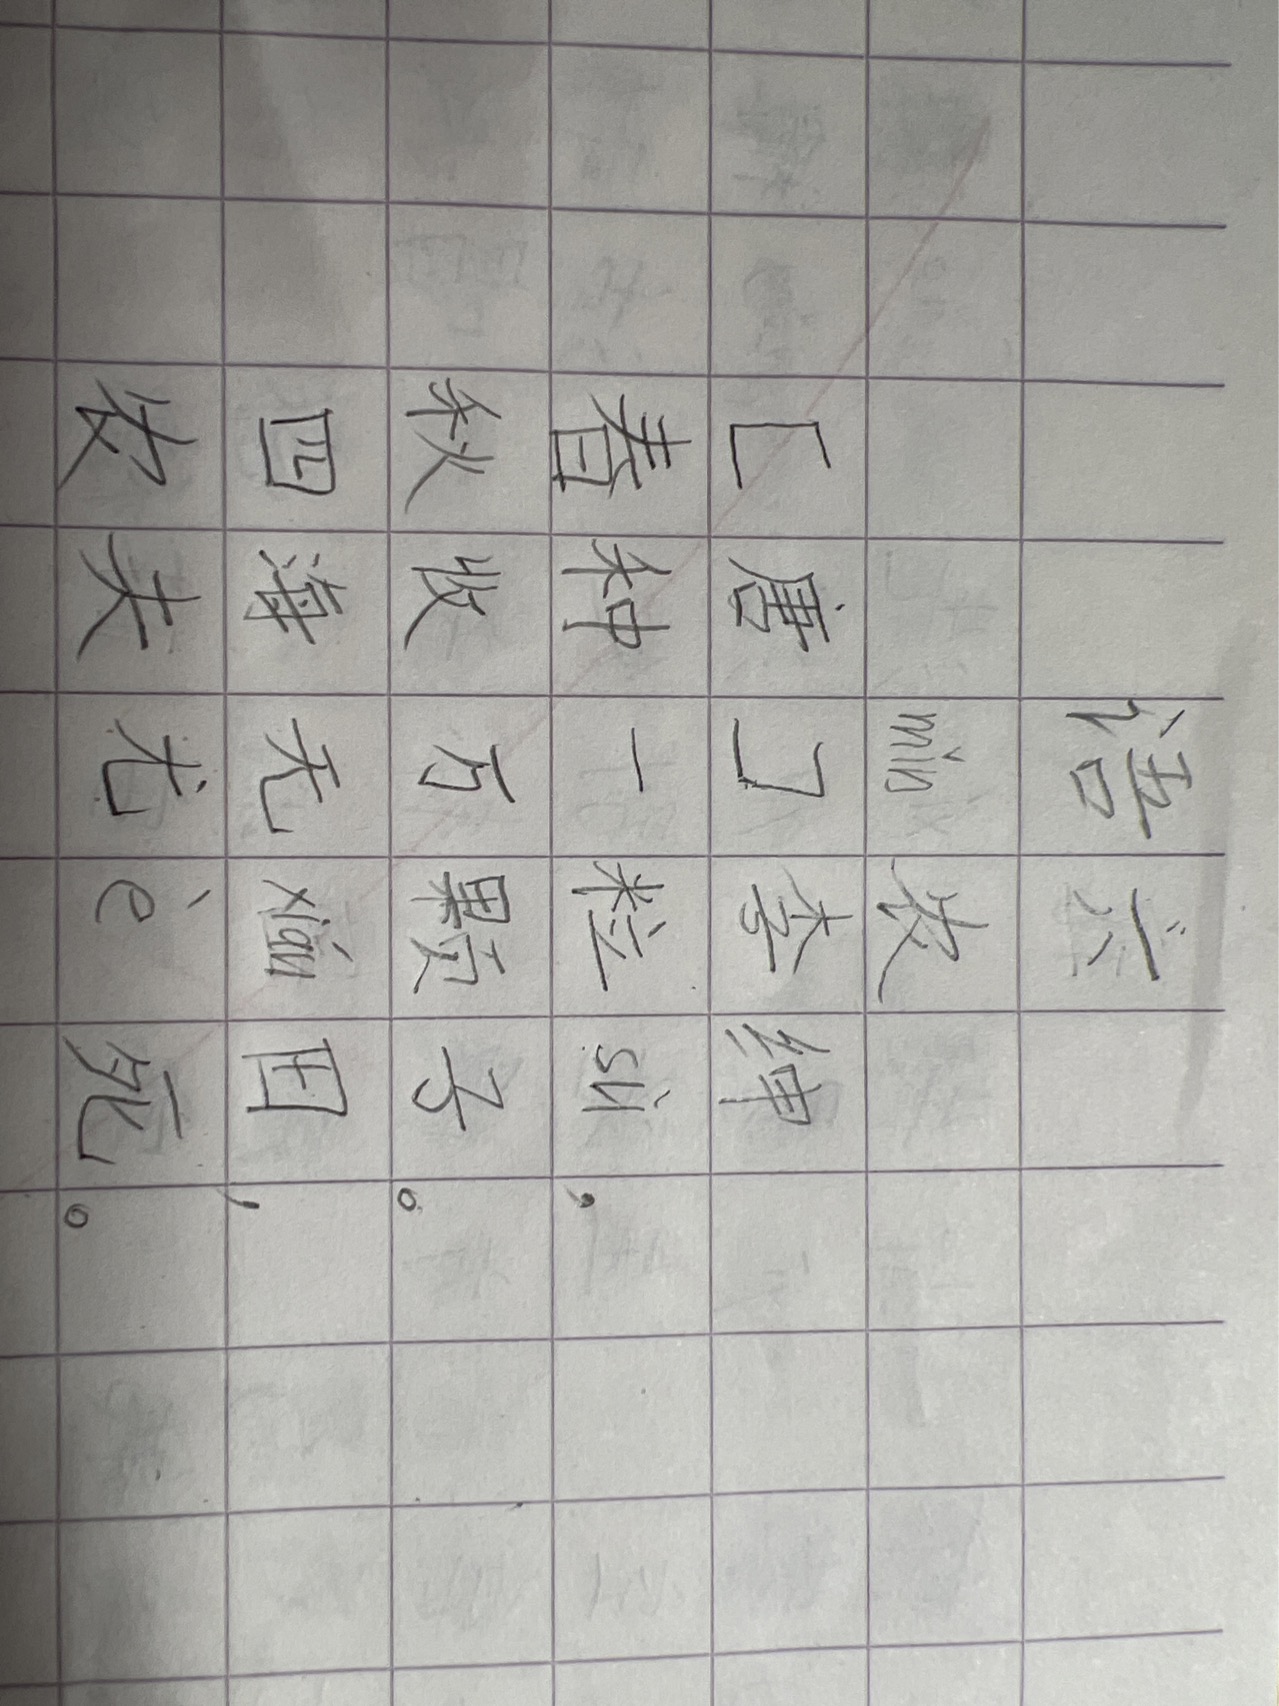 语六
mǐn农
[唐]李绅
春种一粒sù,
秋收万颗子。
四海无xián田,
农夫尤è死。